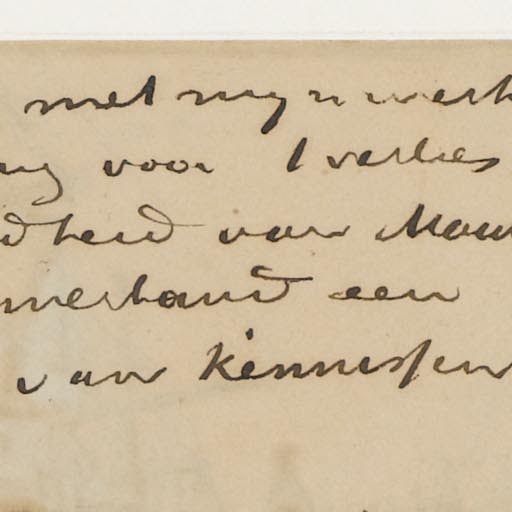 met mijn werk
ng voor 't verlies
dheid van Mauv
merhand een
van kennissen